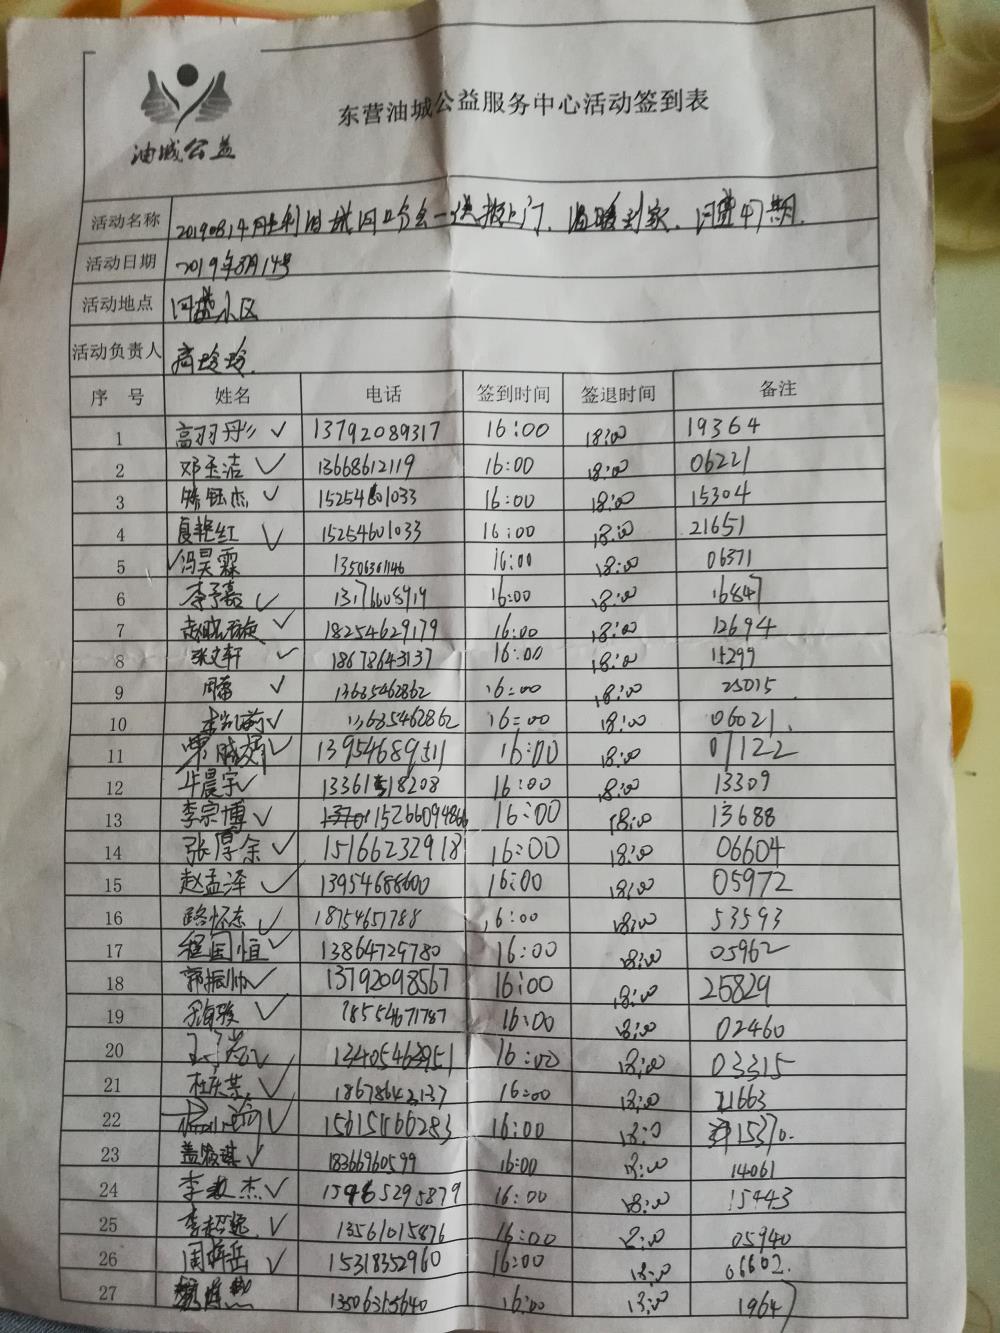 油城公益
东营油城公益服务中心活动签到表
活动名称 20190814胜利油城河口分会—送报上门、温暖到家、河盛47期.
活动日期 2019年8月14号
活动地点 河盛小区
活动负责人 高玲玲.
序 号 姓名 电话 签到时间 签退时间 备注
1 高羽彤 ✓ 13792089317 16:00 18:00 19364
2 邓玉洁 ✓ 13668612119 16:00 18:00 06221
3 钰杰 ✓ 15254601033 16:00 18:00 15304
4 夏艳红 ✓ 15254601033 16:00 18:00 21651
5 ✓冯昊霖 16:00 18:00 06371
6 李予嘉 ✓ 16:00 18:00 16847
7 赵 ✓ 18254629179 16:00 18:00 12694
8 张文轩 ✓ 18678643137 16:00 18:00 15299
9 周蕾 ✓ 13685462862 16:00 18:00 25015
10 ✓ 13685462862 16:00 18:00 06021
11 ✓ 16:00 18:00 07122
12 华晨宇 ✓ 18208 16:00 18:00 13309
13 李宗博 ✓ 15266094866 16:00 18:00 13688
14 张厚余 ✓ 15166232918 16:00 18:00 06604
15 赵孟泽 ✓ 13954688600 16:00 18:00 05972
16 路怀志 ✓ 18754657788 16:00 18:00 53593
17 程国恒 ✓ 13864729780 16:00 18:00 05962
18 郭振帅 ✓ 13792098567 16:00 18:00 25829
19 ✓ 18554671787 16:00 18:00 02460
20 ✓ 16:00 18:00 03315
21 杜庆荣 ✓ 18678642137 16:00 18:00 21663
22 ✓ 16:00 18:00 15370.
23 盖 ✓ 18366960599 16:00 18:00 14061
24 李 杰 ✓ 16:00 18:00 15443
25 李超 ✓ 13561015876 16:00 18:00 05940
26 周 岳 ✓ 15318352960 16:00 18:00 06602.
27 13506365640 16:00 18:00 19647